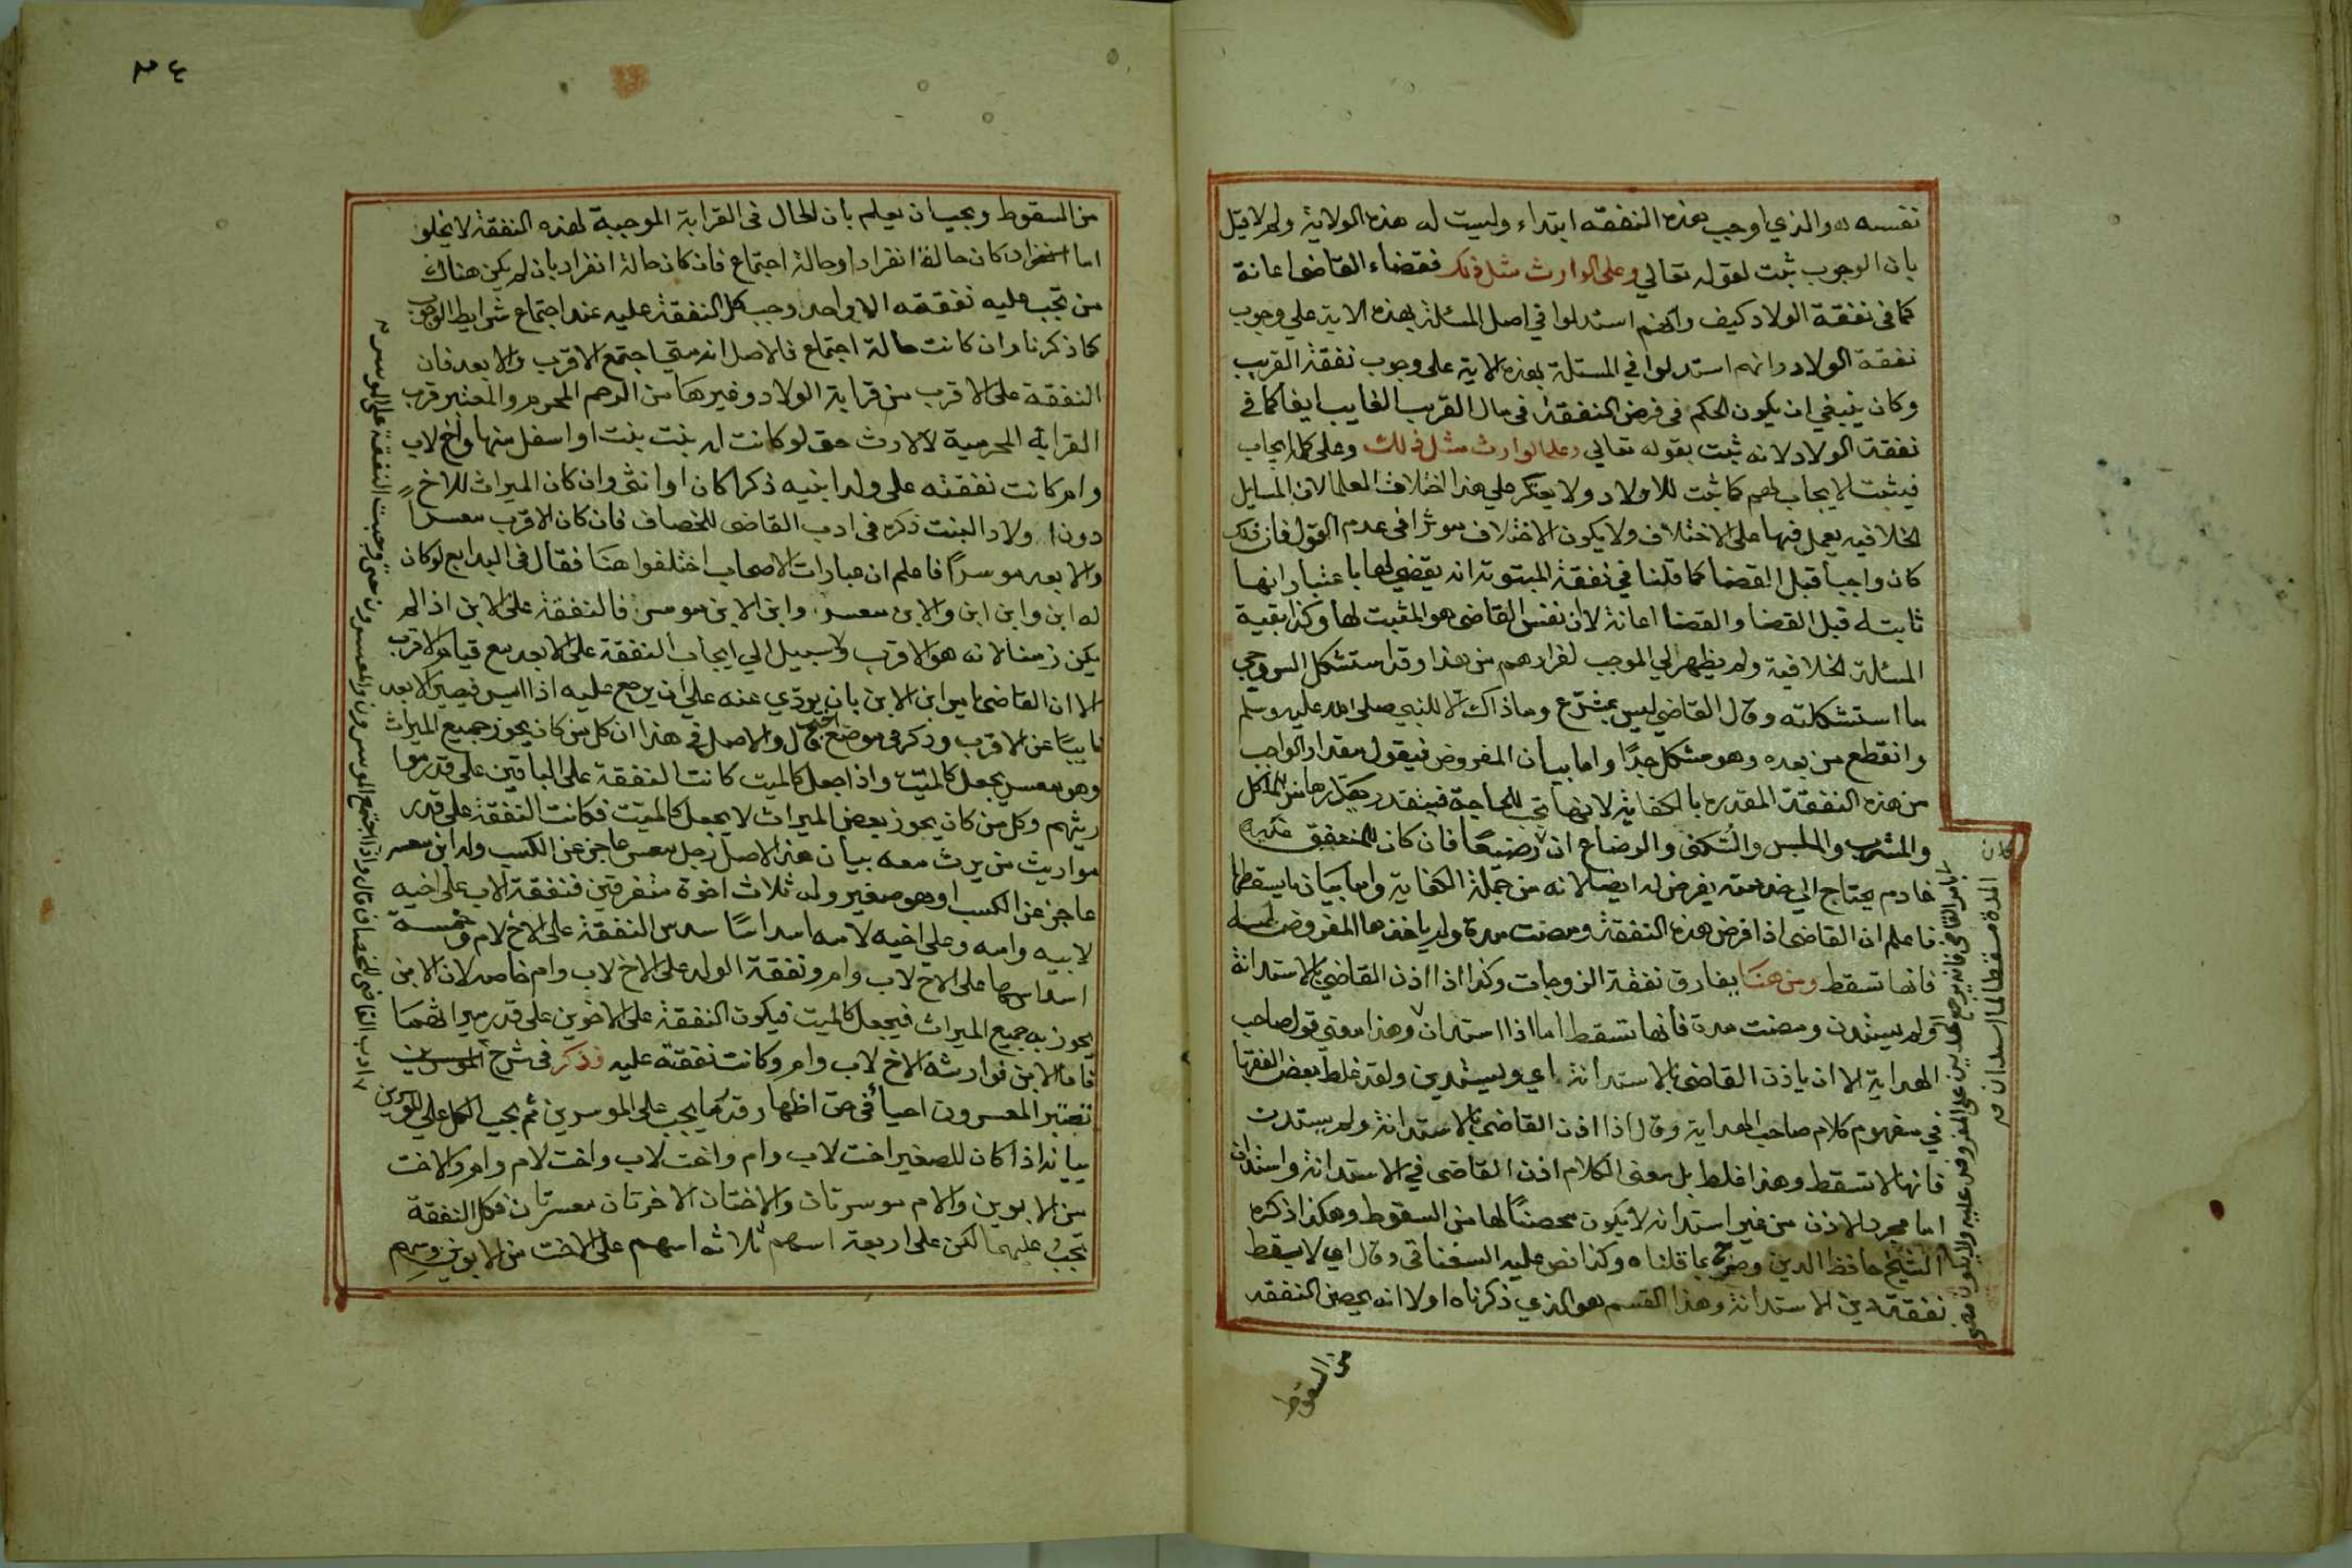 نفسه هو الذي اوجب هذه النفقه ابتداء وليست له هذه الولاية ولم لا قيل
بان الوجوب ثبت لقوله تعالي وعلى الوارث مثل ذلك فقضاء القاضى اعانة
كما فى نفقة الولاد كيف وانهم استدلوا في اصل المسئلة بهذه الاية علي وجوب
نفقة الولاد وانهم استدلوا في المسئلة بهذه الاية على وجوب نفقة القريب
وكان ينبغي ان يكون الحكم فى فرض النفقة فى مال القريب الغايب ايضا كما في
نفقة الولاد لانه ثبت بقوله تعالي وعلى الوارث مثل ذلك وعلى كلمة ايجاب
فيثبت الايجاب لهم كما ثبت للاولاد ولا يعكر علي هذا اختلاف العلما لان المسايل
الخلافيه يعمل فيها على الاختلاف ولا يكون الاختلاف موثرا في عدم القول فان ذلك
كان واجبا قبل القضا كما قلنا في نفقة المبتوتة انه يقضي لها باعتبار انها
ثابتة قبل القضا والقضا اعانة لان نفس القاضى هو المثبت لها وكذا بقية
المسئلة الخلافية ولم يظهر لي الموجب لفرارهم من هذا وقد استشكل السروجي
ما استشكلته وقال القاضي ليس بمشرّع وما ذاك الا للنبي صلى الله عليه وسلم
وانقطع من بعده وهو مشكل جدًا واما بيان المفروض فيقول مقدار الواجب
من هذه النفقة المقدره بالكفاية لانها تجب للحاجة فيتقدر بقدرها من المأكل
والمشرب والملبس والسكنى والرضاع ان رضيعًا فان كان للمنفق عليه
خادم يحتاج الي خدمته يفرض له ايضا لانه من جملة الكفاية واما بيان ما يسقطها
فاعلم ان القاضى اذا فرض هذه النفقة ومضت مدة ولم ياخذها المفروض له
فانها تسقط ومن هنا يفارق نفقة الزوجات وكذا اذا اذن القاضي بالاستدانة
ولم يستدن ومضت مدة فانها تسقط اما اذا استدان وهذا معني قول صاحب
الهداية الا ان ياذن القاضى بالاستدانة اي ويستدين ولقد غلط بعض الفقها
في مفهوم كلام صاحب الهداية وقال اذا اذن القاضى بالاستدانة ولم يستدن
فانها لا تسقط وهذا غلط بل معنى الكلام اذن القاضى في الاستدانة واستدان
اما مجرد الاذن من غير استدانه لا يكون محصنًا لها من السقوط وهكذا ذكره
الشيخ حافظ الدين وصرح بما قلناه وكذا نص عليه السغناقى وقال اي لا يسقط
نفقة دين الاستدانة وهذا القسم هو الذي ذكرناه اولا انه يحصن النفقه
كان
المدة مسقطا لما استدان
بامر القاضى فانه يرجع الدين على المفروض عليه ولا يكون مضى
من السقوط
٣٤
من السقوط ويجب ان يعلم بان الحال فى القرابة الموجبة لهذه النفقة لا يخلو
اما كان حالة انفراد او حالة اجتماع فان كان حالة انفراد بان لم يكن هناك
من تجب عليه نفقته الا واحد وجب كل النفقة عليه عند اجتماع شرايط الوجوب
كما ذكرنا وان كانت حالة اجتماع فالاصل انه متي اجتمع الاقرب والابعد فان
النفقة على الاقرب من قرابة الولاد وغيرها من الرحم المحرم والمعتبر قرب
القرابة المحرمية لا الارث حتى لو كانت له بنت بنت او اسفل منها واخ لاب
وام كانت نفقته على ولد ابنته ذكرا كان او انثى وان كان الميراث للاخ
دون اولاد البنت ذكره فى ادب القاضى للخصاف فان كان الاقرب معسرًا
والابعد موسرًا فاعلم ان عبارات الاصحاب اختلفوا هنا فقال فى البدايع لو كان
له ابن وابن ابن والابن معسر وابن الابن موسر فالنفقة على الابن اذا لم
يكن زمنا لانه هو الاقرب ولا سبيل الي ايجاب النفقة على الابعد مع قيام الاقرب
الا ان القاضى يامر ابن الابن بان يودّي عنه علي ان يرجع عليه اذا ايسر فيصير الابعد
نايبًا عن الاقرب وذكر فى موضع اخر قال والاصل في هذا ان كل من كان يحوز جميع الميراث
وهو معسر يجعل كالميّت واذا جعل كالميت كانت النفقة على الباقين على قدر موا
ريثهم وكل من كان يحوز بعض الميراث لا يجعل كالميّت فكانت النفقة على قدر
مواريث من يرث معه بيان هذا الاصل رجل معسر عاجز عن الكسب وله ابن معسر
عاجز عن الكسب او هو صغير وله ثلاث اخوة متفرقين فنفقة الاب على اخيه
لابيه وامه وعلي اخيه لامه اسداسًا سدس النفقة على الاخ لام وخمسة
اسداسها على الاخ لاب وام ونفقة الولد على الاخ لاب وام خاصه لان الابن
يحوز به جميع الميراث فيجعل كالميت فيكون النفقة على الاخوين على قدر ميراثهما
فاما الابن فوارثه الاخ لاب وام وكانت نفقته عليه وذكر فى شرح
تعتبر المعسرون احيأ فى حق اظهار قدر ما يجب على الموسرين ثم يجب الكل علي الموسرين
بيانه اذا كان للصغير اخت لاب وام واخت لاب واخت لام وام والاخت
من الابوين والام موسرتان والاختان الاخرتان معسرتان فكل النفقة
تجب عليهما لكن على اربعة اسهم ثلاثه اسهم على الاخت من الابوين وسهم
ادب القاضى للخصاف قال واذا اجتمع الموسرون والمعسرون حتى وجبت النفقة على الموسر